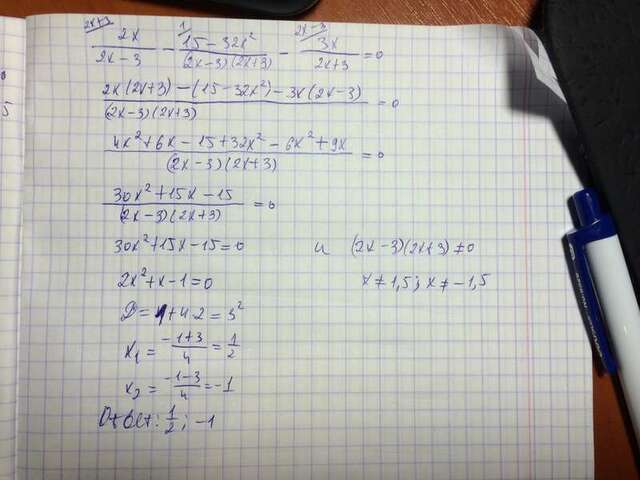 2x+3 1 2x-3
2x/(2x-3) - (15-32x²)/((2x-3)(2x+3)) - 3x/(2x+3) = 0
(2x(2x+3)-(15-32x²)-3x(2x-3))/((2x-3)(2x+3)) = 0
(4x²+6x-15+32x²-6x²+9x)/((2x-3)(2x+3)) = 0
(30x²+15x-15)/((2x-3)(2x+3)) = 0
30x²+15x-15=0 и (2x-3)(2x+3)≠0
2x²+x-1=0 x≠1,5; x≠-1,5
D=1+4·2=3²
x₁=(-1+3)/4=1/2
x₂=(-1-3)/4=-1
Ответ: 1/2; -1
5